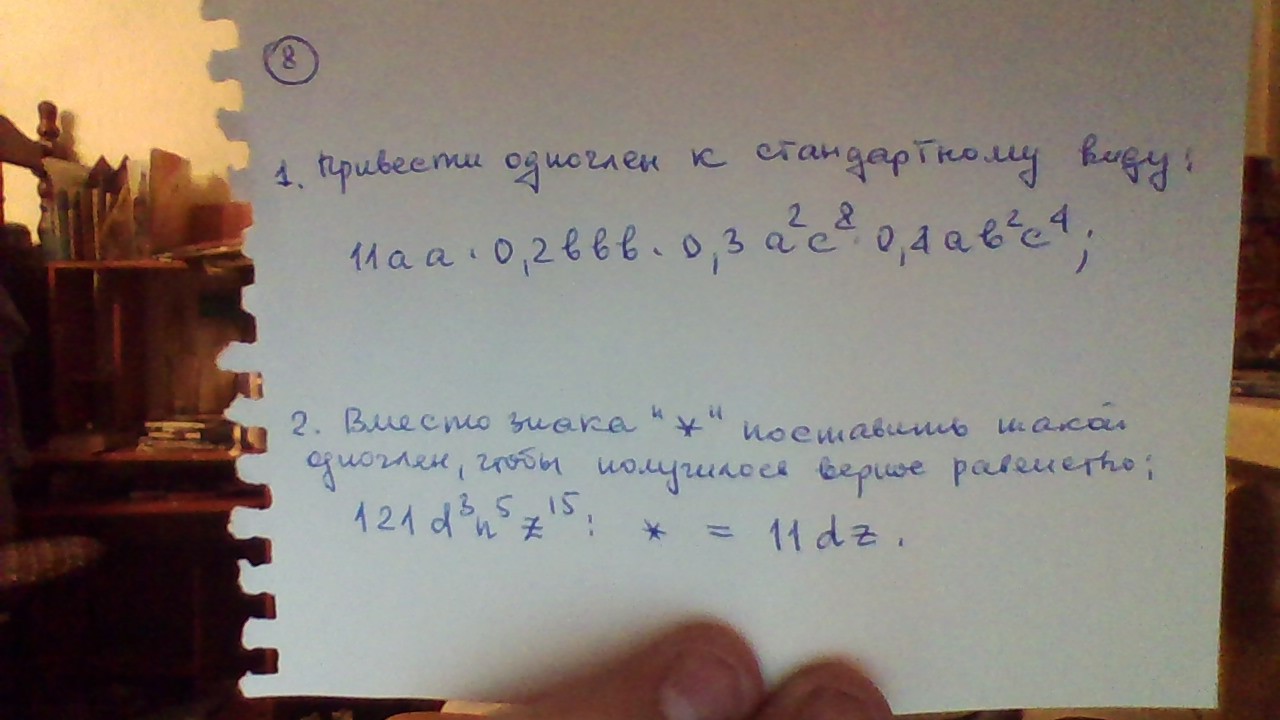 8
1. Привести одночлен к стандартному виду:
11aa · 0,2bbb · 0,3 a²c⁸ · 0,4 ab²c⁴;
2. Вместо знака "*" поставить такой
одночлен, чтобы получилось верное равенство:
121 d³n⁵z¹⁵ : * = 11dz.